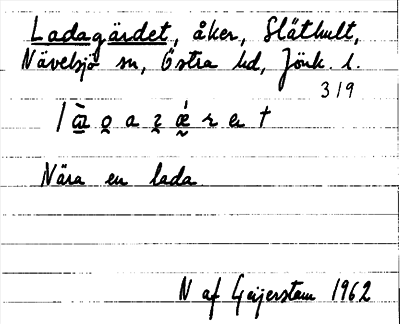 Ladagärdet, åker, Släthult,
Nävelsjö sn, Östra hd, Jönk. l.
319
Nära en lada.
N af Geijerstam 1962